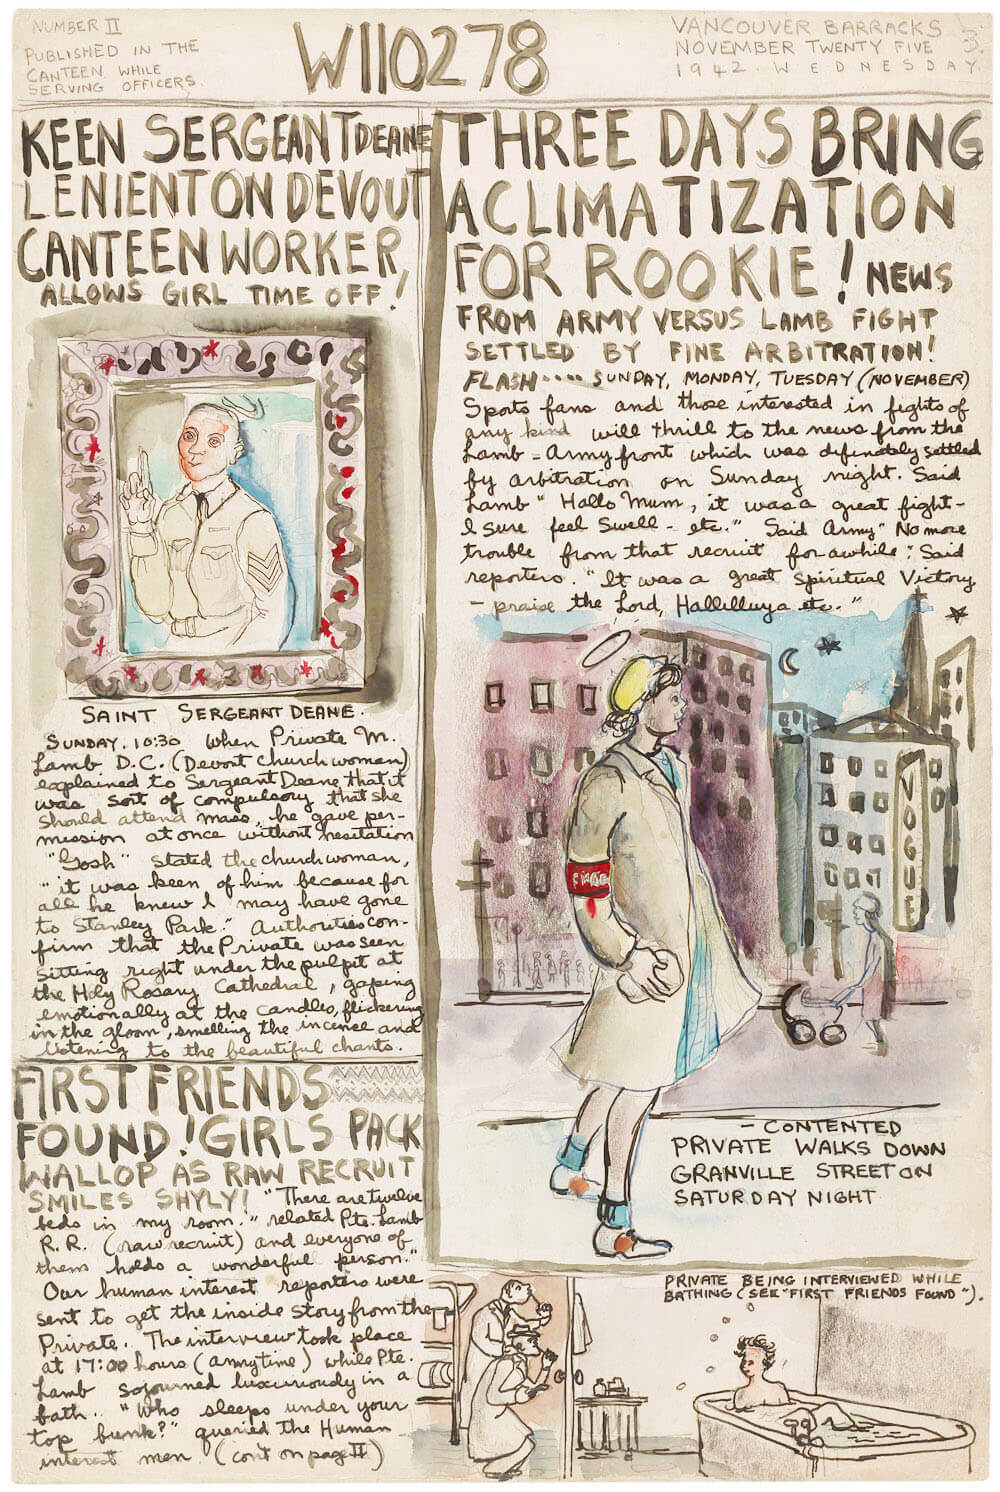 NUMBER II
PUBLISHED IN THE
CANTEEN WHILE
SERVING OFFICERS
W110278
VANCOUVER BARRACKS
NOVEMBER TWENTY FIVE 3.
1942 WEDNESDAY.
KEEN SERGEANT DEANE
LENIENT ON DEVOUT
CANTEEN WORKER,
ALLOWS GIRL TIME OFF!
SAINT SERGEANT DEANE.
SUNDAY. 10:30 When Private M.
Lamb D.C. (Devout church woman)
explained to Sergeant Deane that it
was sort of compulsory that she
should attend mass, he gave per-
mission at once without hesitation
"Gosh" stated the church woman,
"it was keen of him because for
all he knew I may have gone
to Stanley Park." Authorities con-
firm that the Private was seen
sitting right under the pulpit at
the Holy Rosary Cathedral, gaping
emotionally at the candles, flickering
in the gloom, smelling the incence and
listening to the beautiful chants.
FIRST FRIENDS
FOUND! GIRLS PACK
WALLOP AS RAW RECRUIT
SMILES SHYLY! "There are twelve
beds in my room." related Pte. Lamb
R.R. (raw recruit) and everyone of
them holds a wonderful person."
Our human interest reporters were
sent to get the inside story from the
Private. The interview took place
at 17:00 hours (army time) while Pte.
Lamb sojourned luxuriously in a
bath.. "Who sleeps under your
top bunk?" queried the Human
interest men (con't on page II)
THREE DAYS BRING
ACLIMATIZATION
FOR ROOKIE! NEWS
FROM ARMY VERSUS LAMB FIGHT
SETTLED BY FINE ARBITRATION!
FLASH.... SUNDAY, MONDAY, TUESDAY (NOVEMBER)
Spots fans and those interested in fights of
any kind will thrill to the news from the
Lamb-Army front which was definately settled
by arbitration on Sunday night. Said
Lamb "Hallo Mum, it was a great fight-
I sure feel swell - etc." Said Army "No more
trouble from that recruit for awhile": Said
reporters. "It was a great spiritual Victory,
- praise the Lord, Hallilluya etc."
VOGUE
- CONTENTED
PRIVATE WALKS DOWN
GRANVILLE STREET ON
SATURDAY NIGHT
PRIVATE BEING INTERVIEWED WHILE
BATHING (SEE "FIRST FRIENDS FOUND").